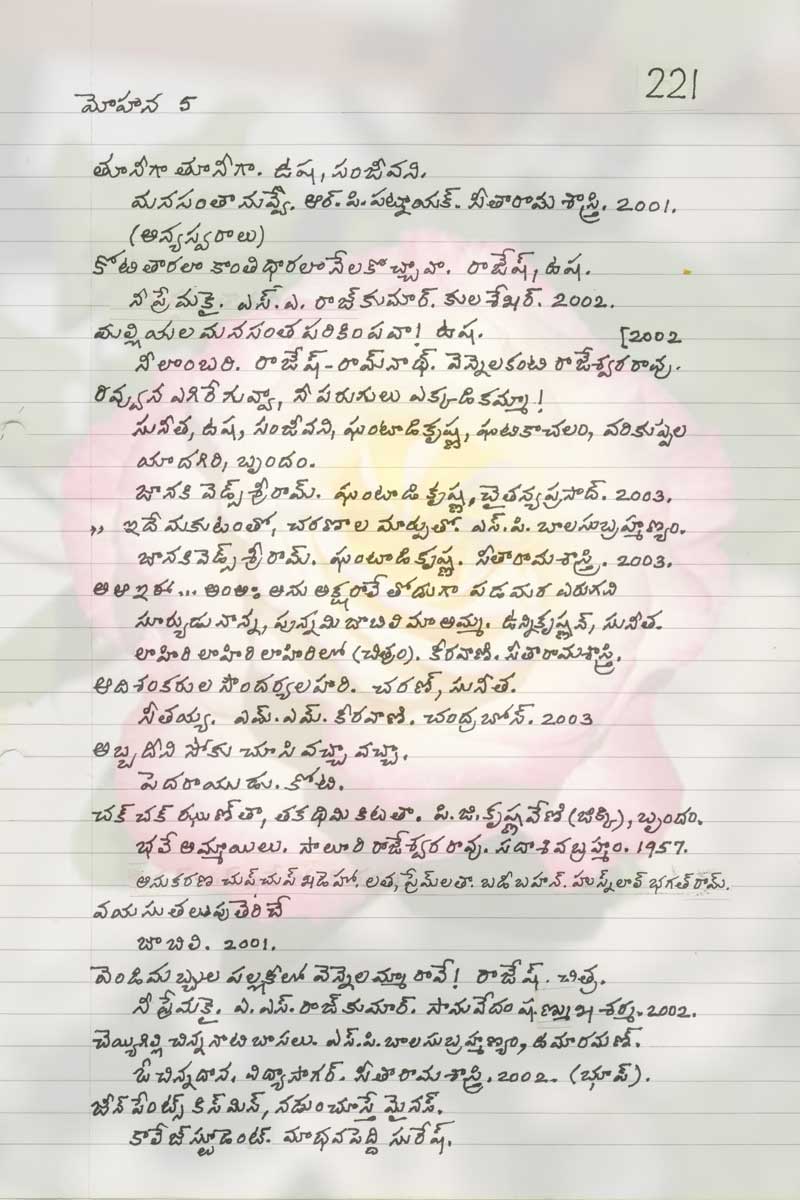 221
మోహన 5
తూనీగా తూనీగా. ఉష, సంజీవని.
మనసంతా నువ్వే. ఆర్.పి.పట్నాయక్. సీతారామశాస్త్రి. 2001.
(అన్యస్వరాలు)
కోటి తారలా కాంతిధారలా నేలకొచ్చావా. రాజేష్, ఉష.
నీ ప్రేమకై. ఎస్.ఎ. రాజ్ కుమార్. కులశేఖర్. 2002.
మల్లియల మనసంత పరికింపవా! ఉష. [2002
నీలాంబరి. రాజేష్-రామ్ నాథ్. వెన్నెలకంటి రాజేశ్వరరావు.
రివ్వున ఎగిరే గువ్వా, నీ పరుగులు ఎక్కడికమ్మా!
సునీత, ఉష, సంజీవని, ఘంటాడికృష్ణ, ఘటికాచలం, వరికుప్పల
యాదగిరి, బృందం.
జానకి వెడ్స్ శ్రీరామ్. ఘంటాడి కృష్ణ, చైతన్యప్రసాద్. 2003.
,, ఇదే మకుటంతో, చరణాల మార్పుతో. ఎస్.పి. బాలసుబ్రహ్మణ్యం.
జానకివెడ్స్ శ్రీరామ్. ఘంటాడికృష్ణ. సీతారామశాస్త్రి. 2003.
అ ఆ ఇ ఈ... అం అః అను అక్షరాలే తోడుగా పడమర ఎరుగని
సూర్యుడు నాన్న, పున్నమి జాబిలి మా అమ్మ. ఉన్నికృష్ణన్, సునీత.
లాహిరి లాహిరి లాహిరిలో (చిత్రం). కీరవాణి. సీతారామశాస్త్రి.
ఆదిశంకరుల సౌందర్యలహరి. చరణ్, సునీత.
సీతయ్య. ఎమ్.ఎమ్. కీరవాణి. చంద్రబోస్. 2003
అబ్బ దీని సోకు చూసి వచ్చా వచ్చా.
పెదరాయుడు. కోటి.
చక్ చక్ ఝణ్ తా, తకధిమి కిటతా. పి.జి.కృష్ణవేణి (జిక్కి), బృందం.
భలే అమ్మాయిలు. సాలూరి రాజేశ్వరరావు. సదాశివబ్రహ్మం. 1957.
అనుకరణ చుప్ చుప్ ఖడెహో. లత, ప్రేమ్ లతా. బడీబహన్. హుస్న్ లాల్ భగత్ రామ్.
వయసు తలుపు తెరిచే
జాబిలి. 2001.
వెండిమబ్బుల పల్లకిలో వెన్నెలమ్మా రావే! రాజేష్. చిత్ర.
నీ ప్రేమకై. ఎ.ఎస్. రాజ్ కుమార్. సామవేదం షణ్ముఖశర్మ. 2002.
చెయ్యిగిల్లి చిన్ననాటి బాసలు. ఎస్.పి.బాలసుబ్రహ్మణ్యం, ఉమారమణన్.
ఓ చిన్నదాన. విద్యాసాగర్. సీతారామశాస్త్రి. 2002. (భూప్).
జీన్ పేంట్స్ కిస్ మిస్, నడుంచూస్తే మైనస్.
కాలేజ్ స్టూడెంట్. మాధవపెద్ది సురేష్.